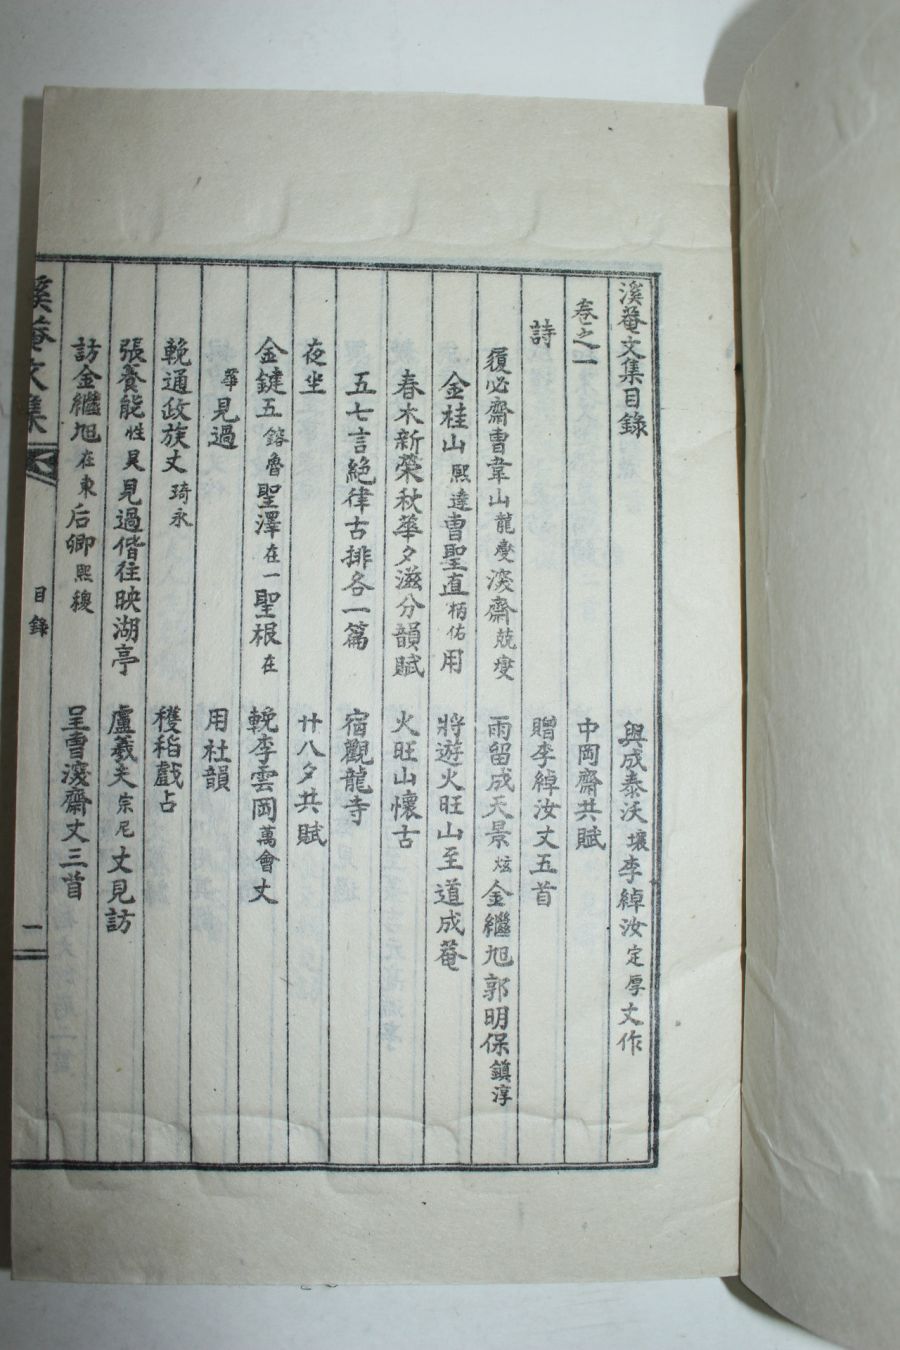 溪菴文集目錄
與成泰沃壤李綽汝定厚丈作
卷之一
中岡齋共賦
詩
贈李綽汝丈五首
履必齋曺韋山龍慶深齋兢燮
雨留成天景炫金繼旭郭明保鎮淳
金桂山熙達曺聖直柄佑用
將遊火旺山至道成菴
春木新榮秋華夕滋分韻賦
火旺山懷古
五七言絕律古排各一篇
宿觀龍寺
夜坐
廿八夕共賦
金鍵五鎔魯聖澤在一聖根在
輓李雲岡萬會丈
華見過
用社韻
輓通政族丈琦永
穫稻戲占
張養能性具見過偕往映湖亭
盧羲夫宗尼丈見訪
訪金繼旭在東后卿熙稷
呈曺深齋丈三首
溪菴文集
目錄
一